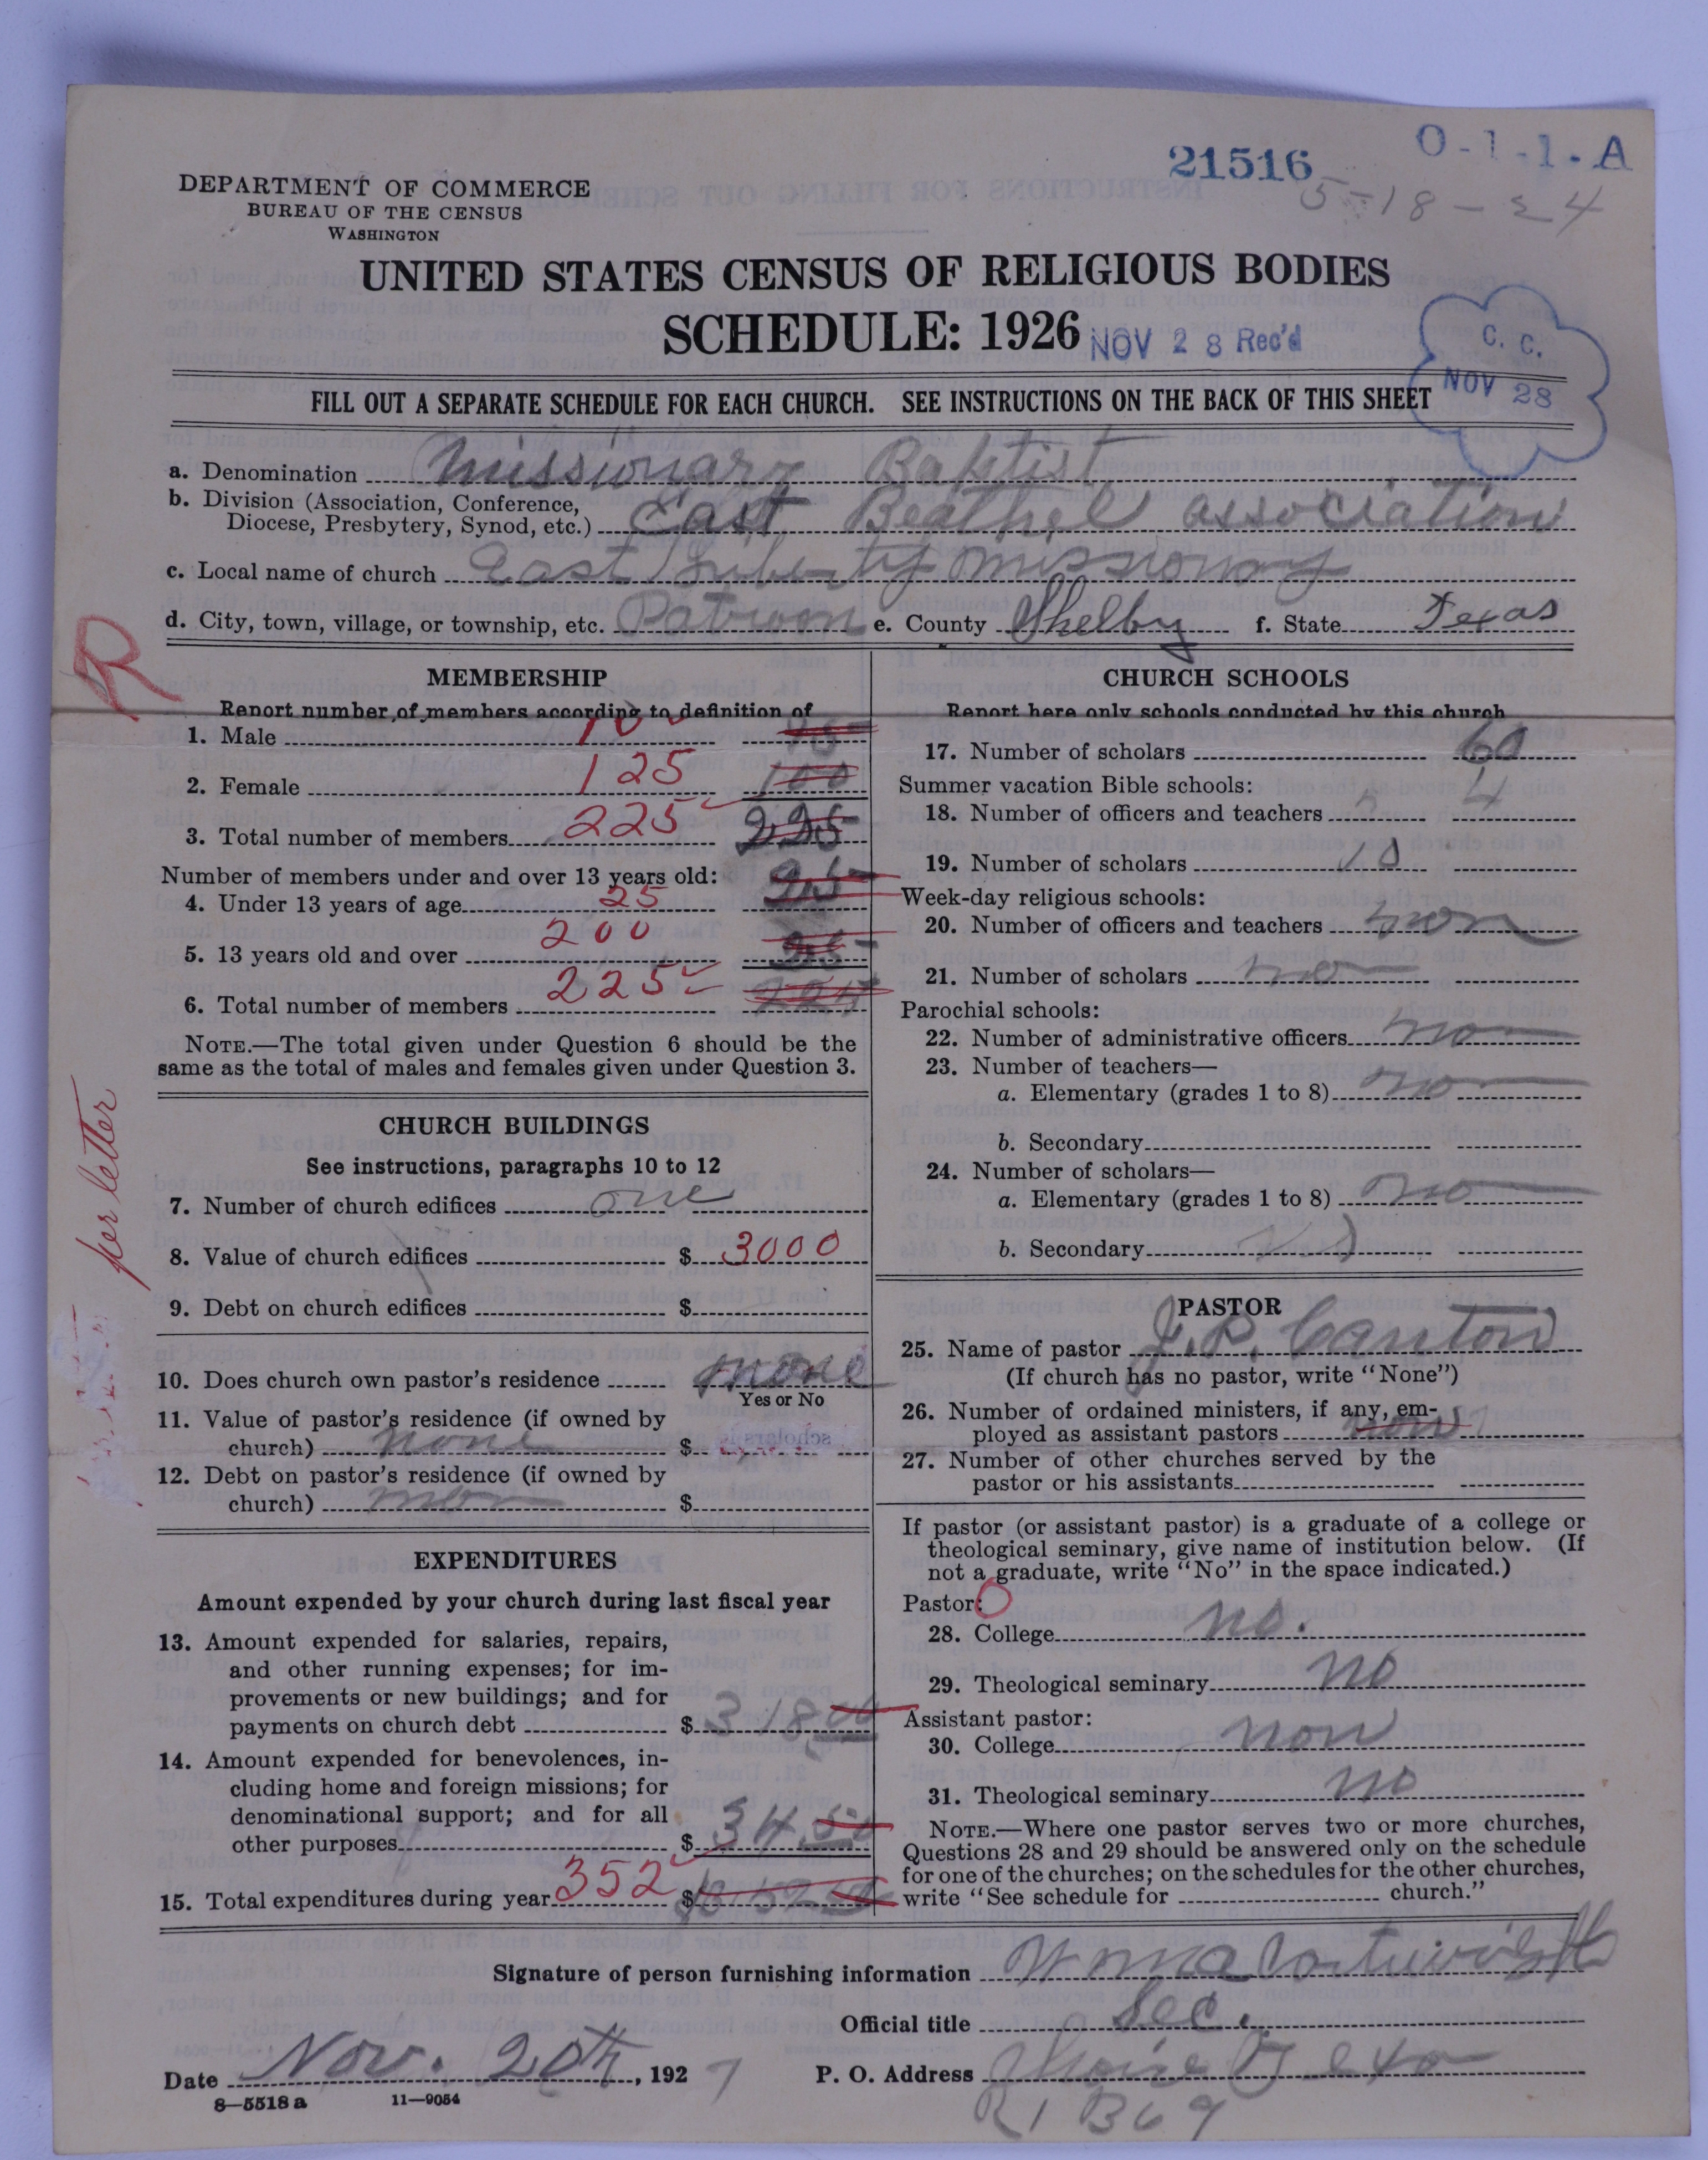 21516
O-1-1-A
5-18-24
DEPARTMENT OF COMMERCE
BUREAU OF THE CENSUS
WASHINGTON
UNITED STATES CENSUS OF RELIGIOUS BODIES
SCHEDULE: 1926
NOV 28 Rec'd
C. C.
NOV 28
FILL OUT A SEPARATE SCHEDULE FOR EACH CHURCH. SEE INSTRUCTIONS ON THE BACK OF THIS SHEET
a. Denomination Missionary Baptist
b. Division (Association, Conference,
Diocese, Presbytery, Synod, etc.) East Beathel association
c. Local name of church East Liberty missionary
d. City, town, village, or township, etc. Patroon e. County Shelby f. State Texas
R
MEMBERSHIP
Report number of members according to definition of
1. Male
2. Female 125 100
3. Total number of members 225 225
Number of members under and over 13 years old:
4. Under 13 years of age 25 25
5. 13 years old and over 200
6. Total number of members 225 225
NOTE.—The total given under Question 6 should be the
same as the total of males and females given under Question 3.
per letter
CHURCH BUILDINGS
See instructions, paragraphs 10 to 12
7. Number of church edifices one
8. Value of church edifices $ 3000
9. Debt on church edifices $
10. Does church own pastor's residence none
Yes or No
11. Value of pastor's residence (if owned by
church) none $
12. Debt on pastor's residence (if owned by
church) $
EXPENDITURES
Amount expended by your church during last fiscal year
13. Amount expended for salaries, repairs,
and other running expenses; for im-
provements or new buildings; and for
payments on church debt $ 318.00
14. Amount expended for benevolences, in-
cluding home and foreign missions; for
denominational support; and for all
other purposes $ 34.50
15. Total expenditures during year 352 $
CHURCH SCHOOLS
Report here only schools conducted by this church
17. Number of scholars 60
Summer vacation Bible schools:
18. Number of officers and teachers 4
19. Number of scholars 10
Week-day religious schools:
20. Number of officers and teachers non
21. Number of scholars no
Parochial schools:
22. Number of administrative officers no
23. Number of teachers—
a. Elementary (grades 1 to 8) no
b. Secondary
24. Number of scholars—
a. Elementary (grades 1 to 8) no
b. Secondary
PASTOR
25. Name of pastor J. P. Canton
(If church has no pastor, write "None")
26. Number of ordained ministers, if any, em-
ployed as assistant pastors non
27. Number of other churches served by the
pastor or his assistants
If pastor (or assistant pastor) is a graduate of a college or
theological seminary, give name of institution below. (If
not a graduate, write "No" in the space indicated.)
Pastor:
28. College no.
29. Theological seminary no
Assistant pastor:
30. College non
31. Theological seminary no
NOTE.—Where one pastor serves two or more churches,
Questions 28 and 29 should be answered only on the schedule
for one of the churches; on the schedules for the other churches,
write "See schedule for church."
Signature of person furnishing information
Official title Sec.
Date Nov. 20th, 1927 P. O. Address
R 1 B 69
8—5518a 11—9054